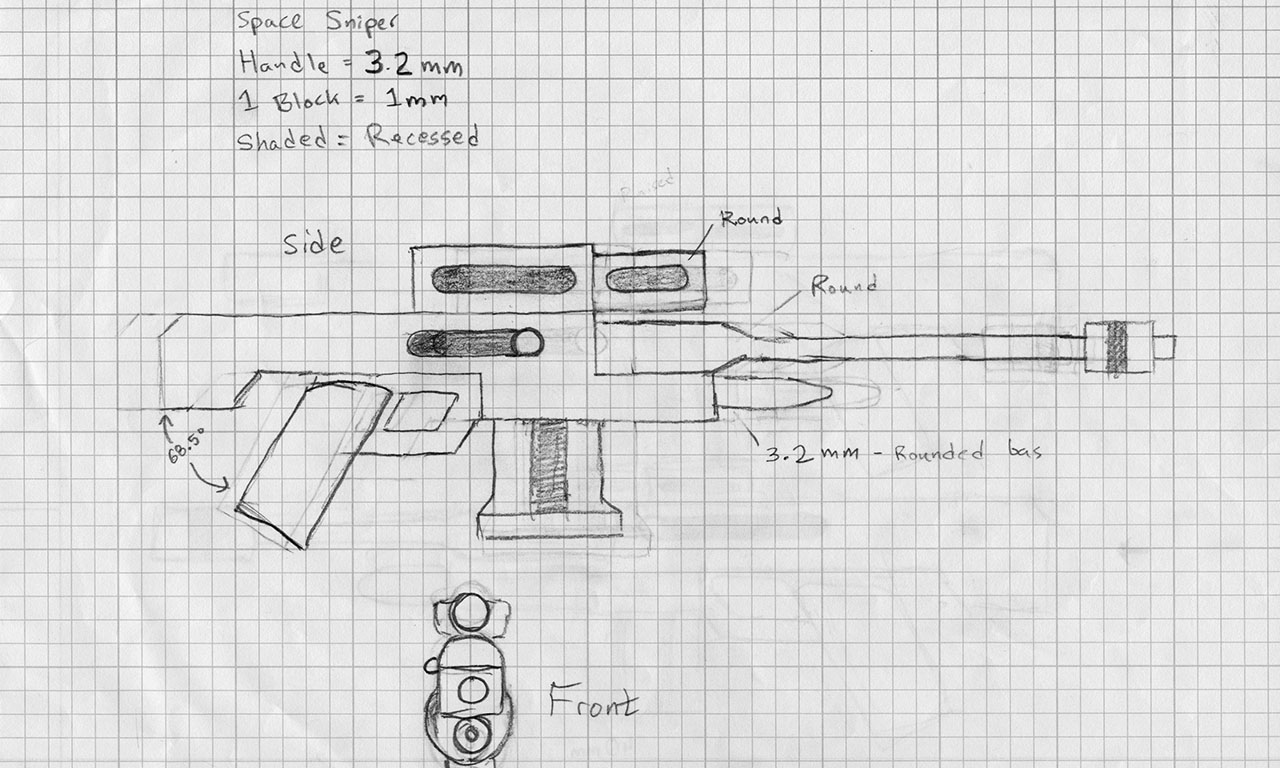 Space Sniper
Handle = 3.2 mm
1 Block = 1mm
Shaded = Recessed
Round
Side
Round
68.5°
3.2 mm - Rounded bas
Front